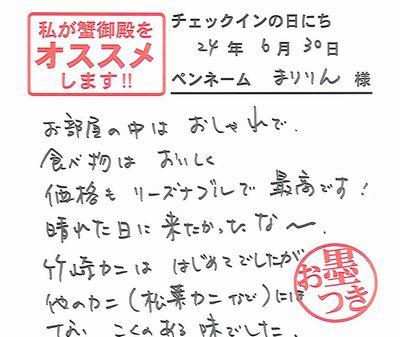 私が蟹御殿を
オススメ
します!!
チェックインの日にち
24年 6月 30日
ペンネーム まりりん 様
お部屋の中は おしゃれで、
食べ物は おいしく
価格も リーズナブルで 最高です!
晴れた日に来たかったな〜。
竹崎カニは はじめてでしたが
他のカニ(松葉カニなど)には
ない こくのある 味でした。
お墨つき